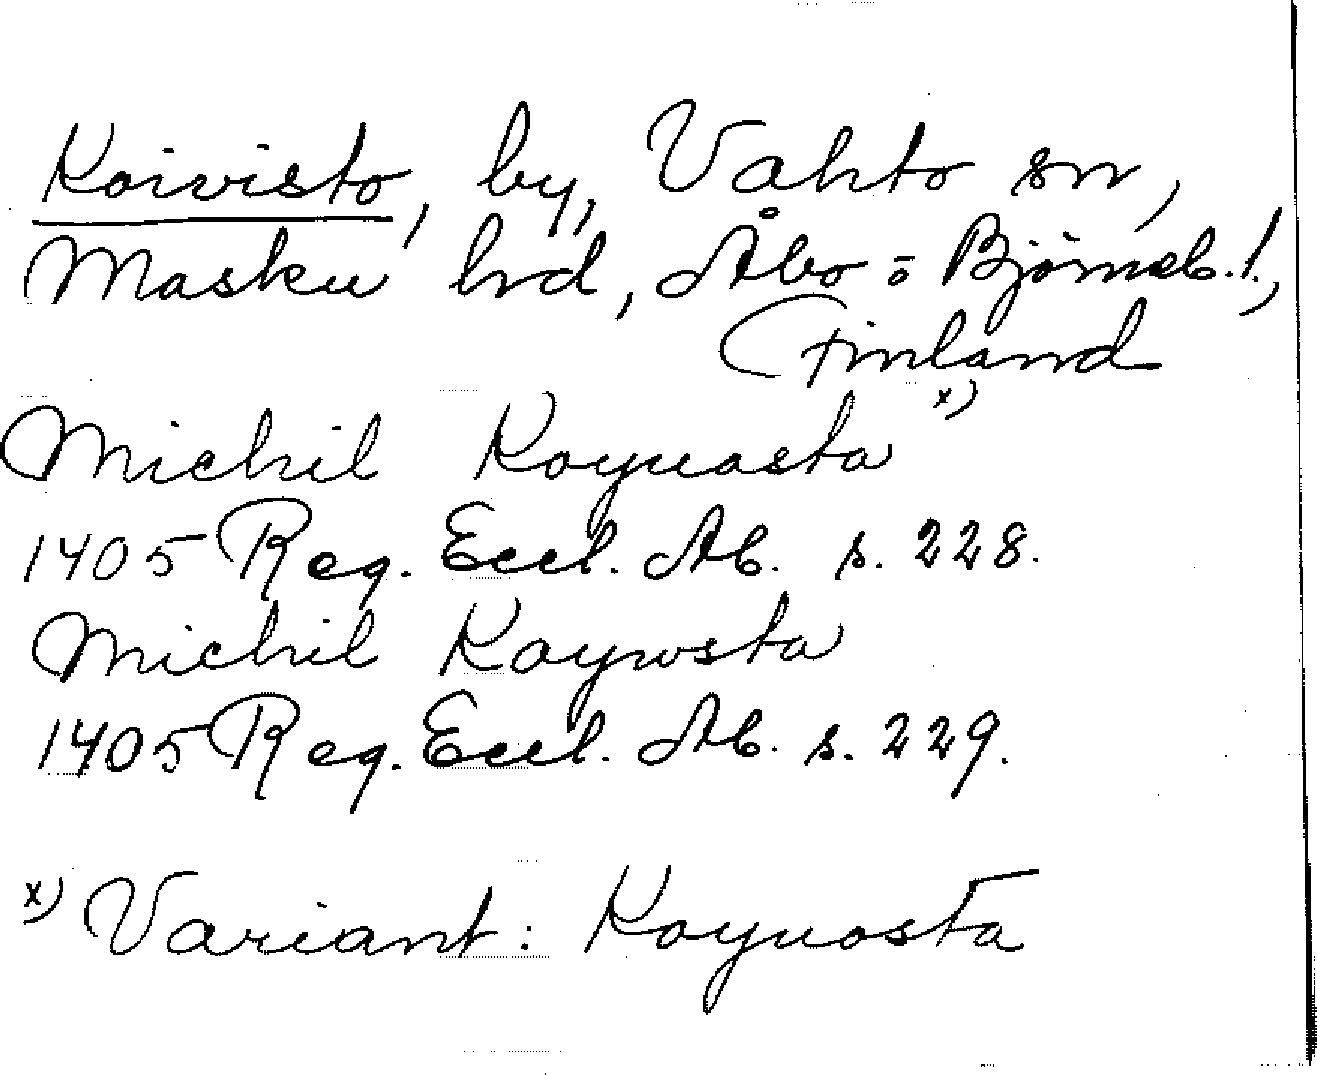 Koivisto, by, Vahto sn,
Masku hd, Åbo o Björneb. l.,
Finland
Michil Koyuasta x)
1405 Reg. Eccl. Ab. s. 228.
Michil Koywsta
1405 Reg. Eccl. Ab. s. 229.
x) Variant: Koyuosta